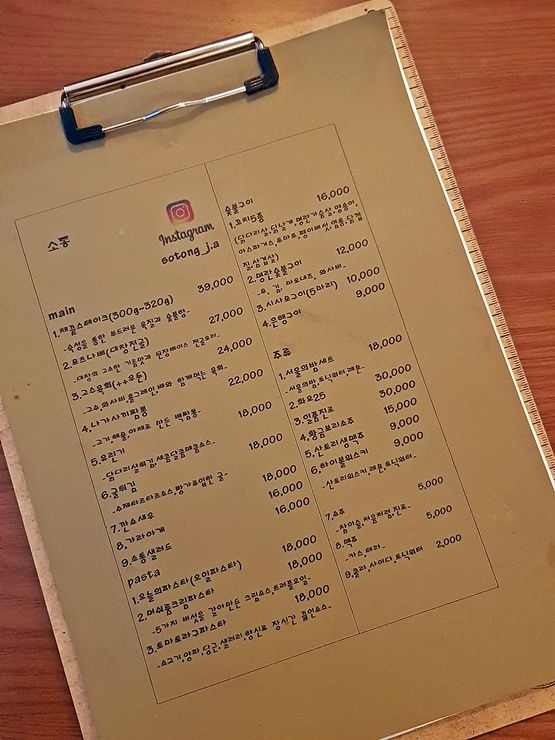 소통
Instagram
sotong_j.a
main
1.채끝스테이크(300g~320g) 39,000
-숙성을 통한 부드러운 육질과 숯불향-
2.모츠나베(대창전골) 27,000
-대창의 고소한 기름맛과 된장베이스 전골요리-
3.고수육회(++우둔) 24,000
-고수,와사비,홀그레인,배와 함께먹는 육회-
4.나가사끼짬뽕 22,000
-고기,해물,야채로 만든 백짬뽕-
5.유린기 18,000
-닭다리살튀김,새콤달콤매콤소스-
6.굴튀김 18,000
-수제타르타르소스,빵가루입힌 굴-
7.깐쇼새우 18,000
8.가라아게 16,000
9.소통샐러드 16,000
pasta
1.오늘의파스타(오일파스타) 18,000
2.머쉬룸크림파스타 18,000
-5가지 버섯을 갈아만든 크림소스,트러플오일-
3.토마토라구파스타 18,000
-소고기,양파,당근,샐러리,향신료 장시간 끓인소스-
숯불구이
1.꼬치5종 16,000
(닭다리살,닭날개,명란가슴살,염통,
아스파거스,토마토,팽이버섯,염통,닭껍
질,삼겹살)
2.명란숯불구이 12,000
-무, 김, 마요네즈, 와사비-
3.시사모구이(5마리) 10,000
4.은행구이 9,000
주류
1.서울의밤세트 18,000
-서울의밤,토닉워터,레몬-
2.화요25 30,000
3.일품진로 30,000
4.황금보리소주 15,000
5.산토리생맥주 9,000
6.하이볼위스키 9,000
-산토리위스키,레몬,토닉워터-
7.소주 5,000
-참이슬,처음처럼,진로-
8.맥주 5,000
-카스,테라-
9.콜라,사이다,토닉워터 2,000